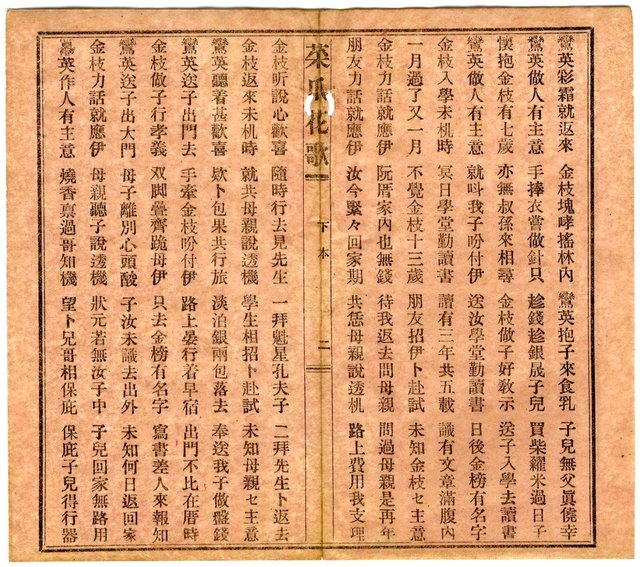 鸞英彩霜就返來 金枝塊哮搖林內 鸞英抱子來食乳 子兒無父眞僥幸
鸞英做人有主意 手捧衣甞做針只 趁錢趁銀晟子兒 買柴糴米過日子
懷抱金枝有七歲 亦無叔孫來相尋 金枝做子好敎示 送子入學去讀書
鸞英做人有主意 就呌我子吩付伊 送汝學堂勤讀書 日後金榜有名字
金枝入學未机時 冥日學堂勤讀書 讀有三年共五載 識有文章滿腹內
一月過了又一月 不覺金枝十三歲 朋友招伊卜赴試 未知金枝セ主意
金枝力話就應伊 阮厝家內也無錢 待我返去問母親 問過母親是再年
朋友力話就應伊 汝今緊々回家期 共恁母親說透机 路上費用我支理
菜瓜花歌 下本 二
金枝听說心歡喜 隨時行去見先生 一拜魁星孔夫子 二拜先生卜返去
金枝返來未机時 就共母親說透機 學生相招卜赴試 未知母親セ主意
鸞英聽着甚歡喜 欵卜包果共行旅 淡泊銀兩包落去 奉送我子做盤錢
鸞英送子出門去 手牽金枝吩付伊 路上晏行着早宿 出門不比在厝時
金枝做子行孝義 双脚疊齊跪母伊 只去金榜有名字 寫書差人來報知
鸞英送子出大門 母子離別心頭酸 子汝未識去出外 未知何日返回家
金枝力話就應伊 母親聽子說透機 狀元若無汝子中 子兒回家無路用
鸞英作人有主意 燒香禀過哥知機 望卜兄哥相保庇 保庇子兒得行器